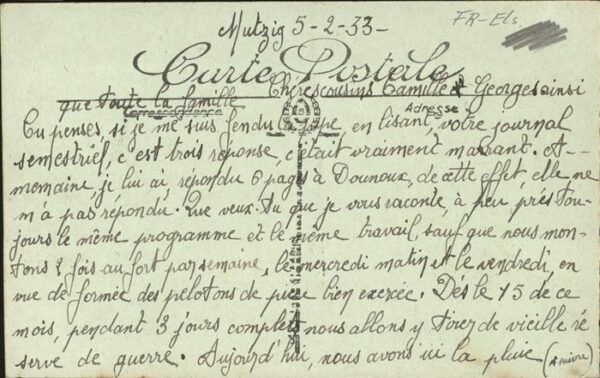 Mutzig 5-2-33-
FR-Els.
Carte Postale
Chérescousins Camille & Georges ainsi
que toute la famille
Correspondance
Adresse
Tu penses, si je me suis fendu la pipe, en lisant, votre journal
semestriel, c'est trois réponse, c'était vraiment marrant. A-
memaine, je lui ai répondu 6 pages à Dounoux, de cette effet, elle ne
m'a pas répondu. Que veux-tu que je vous raconte, à peu près tou-
jours le même programme et le même travail, sauf que nous mon-
tons 2 fois au fort par semaine, le mercredi matin et le vendredi, en
vue de formée des pelotons de pièce bien exercée. Dès le 15 de ce
mois, pendant 3 jours complets nous allons y tirer de vieille ré
serve de guerre. Aujourd'hui, nous avons ici la pluie (A suivre)